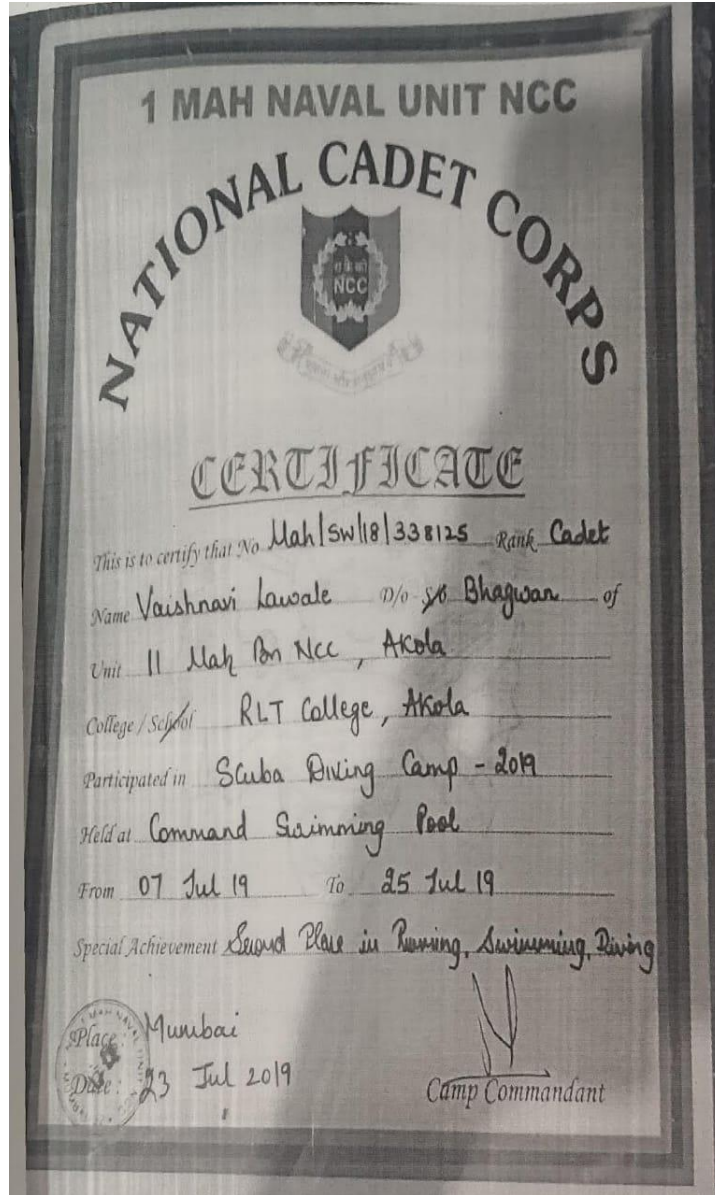 1 MAH NAVAL UNIT NCC
NATIONAL CADET CORPS
NCC
CERTIFICATE
This is to certify that No Mah/SW/18/338125 Rank Cadet
Name Vaishnavi Lawale D/o S/o Bhagwan of
Unit 11 Mah Bn NCC, Akola
College / School RLT College, Akola
Participated in Scuba Diving Camp - 2019
Held at Command Swimming Pool
From 07 Jul 19 To 25 Jul 19
Special Achievement Second Place in Running, Swimming, Diving
Place : Mumbai
Date : 23 Jul 2019
Camp Commandant